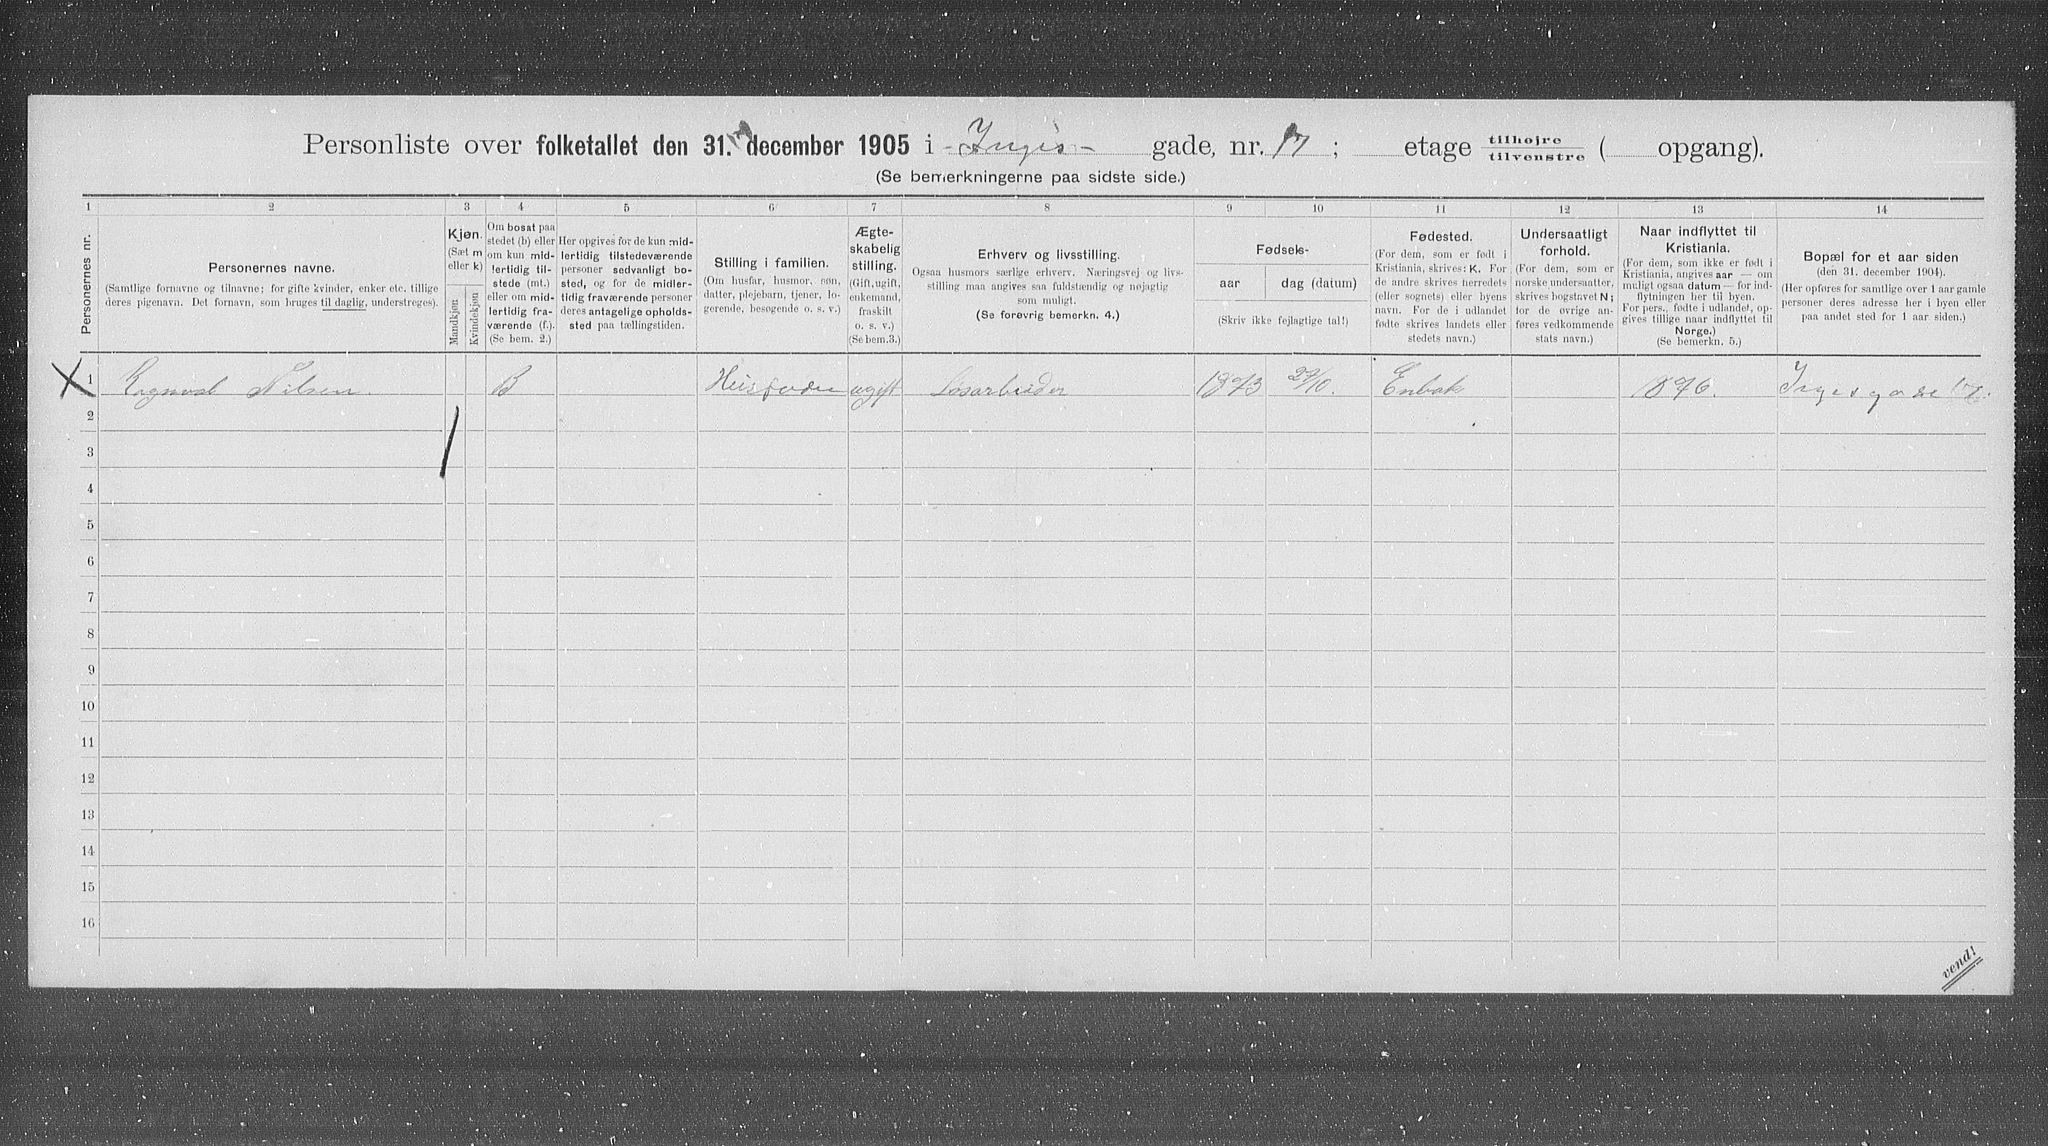 Personliste over folketallet den 31. december 1905 i Inges gade, nr. 17; etage tilhøjre tilvenstre ( opgang).
(Se bemerkningerne paa sidste side.)
1 2 3 4 5 6 7 8 9 10 11 12 13 14
Personernes nr.
Personernes navne.
(Samtlige fornavne og tilnavne; for gifte kvinder, enker etc. tillige
deres pigenavn. Det fornavn, som bruges til daglig, understreges).
Kjøn.
(Sæt m
eller k)
Mandkjøn
Kvindekjøn
Om bosat paa
stedet (b) eller
om kun mid-
lertidig til-
stede (mt.)
eller om mid-
lertidig fra-
værende (f.).
(Se bem. 2.)
Her opgives for de kun mid-
lertidig tilstedeværende
personer sedvanligt bo-
sted, og for de midler-
tidig fraværende personer
deres antagelige opholds-
sted paa tællingstiden.
Stilling i familien.
(Om husfar, husmor, søn,
datter, plejebarn, tjener, lo-
gerende, besøgende o. s. v.)
Ægte-
skabelig
stilling.
(Gift, ugift,
enkemand,
fraskilt
o. s. v.)
(Se bem.3.)
Erhverv og livsstilling.
Ogsaa husmors særlige erhverv. Næringsvej og livs-
stilling maa angives saa fuldstændig og nøjagtig
som muligt.
(Se forøvrig bemerkn. 4.)
Fødsels-
aar dag (datum)
(Skriv ikke fejlagtige tal!)
Fødested.
(For dem, som er født i
Kristiania, skrives: K. For
de andre skrives herredets
(eller sognets) eller byens
navn. For de i udlandet
fødte skrives landets eller
stedets navn.)
Undersaatligt
forhold.
(For dem, som er
norske undersaatter,
skrives bogstavet N;
for de øvrige an-
føres vedkommende
stats navn.)
Naar indflyttet til
Kristiania.
(For dem, som ikke er født i
Kristiania, angives aar — om
muligt ogsaa datum — for ind-
flytningen her til byen.
For pers., fødte i udlandet, op-
gives tillige naar indflyttet til
Norge.)
(Se bemerkn. 5.)
Bopæl for et aar siden
(den 31. december 1904).
(Her opføres for samtlige over 1 aar gamle
personer deres adresse her i byen eller
paa andet sted for 1 aar siden.)
1 Ragnvald Nilsen. B Husfader ugift Løsarbeider 1873 27/10. Enbak 1896. Ingesgade 17.
2
3
4
5
6
7
8
9
10
11
12
13
14
15
16
vend!